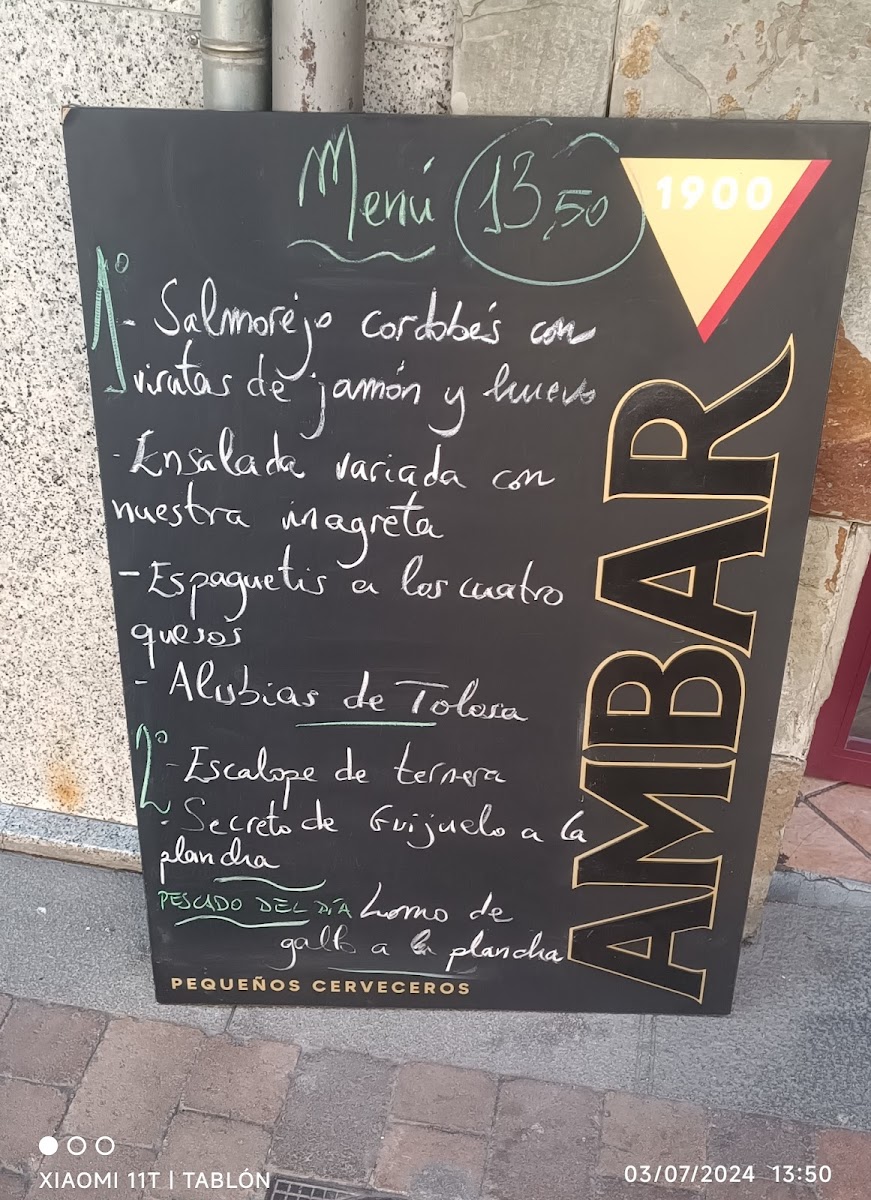 Menú 13,50
1900
1º
- Salmorejo cordobés con
virutas de jamón y huevo
- Ensalada variada con
nuestra vinagreta
- Espaguetis a los cuatro
quesos
- Alubias de Tolosa
2º
- Escalope de ternera
- Secreto de Guijuelo a la
plancha
PESCADO DEL DÍA Lomo de
gallo a la plancha
AMBAR
PEQUEÑOS CERVECEROS
XIAOMI 11T | TABLÓN
03/07/2024 13:50